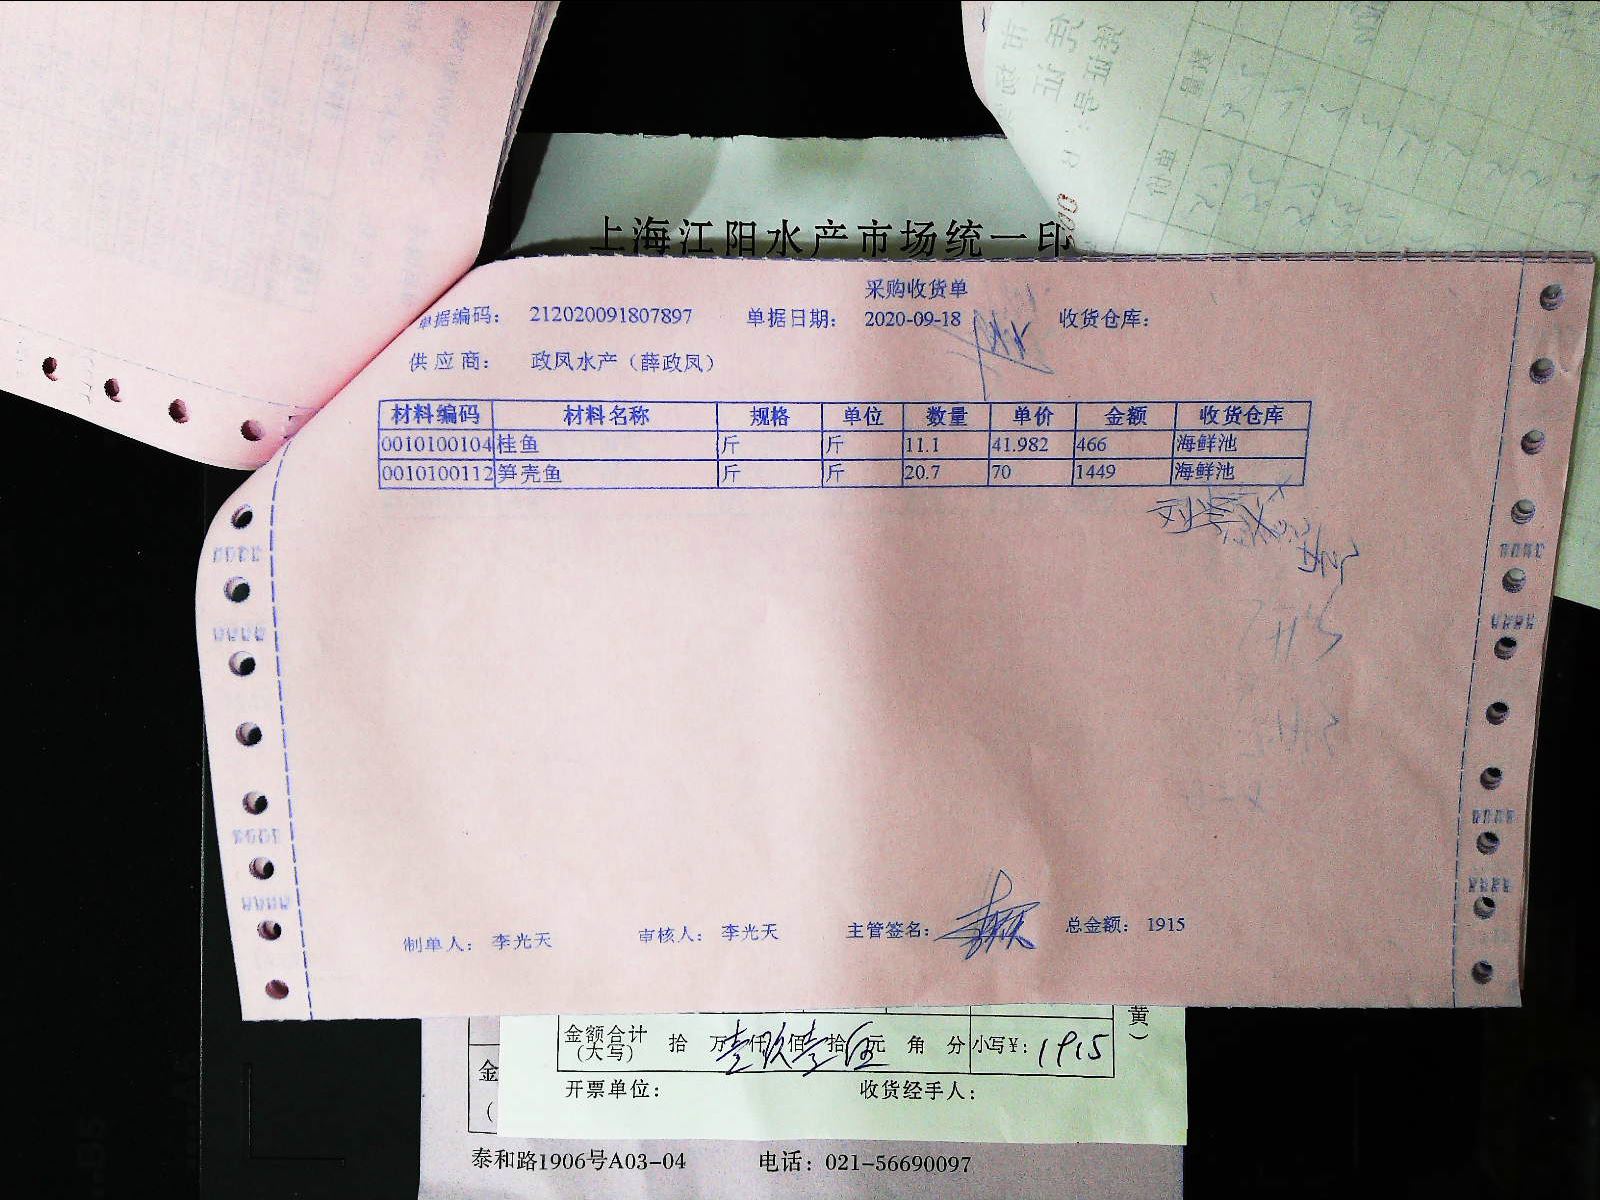 上海江阳水产市场统一印
采购收货单
单据编码： 212020091807897 单据日期： 2020-09-18 收货仓库：
供应商： 政凤水产（薛政凤）
材料编码 材料名称 规格 单位 数量 单价 金额 收货仓库
0010100104 桂鱼 斤 斤 11.1 41.982 466 海鲜池
0010100112 笋壳鱼 斤 斤 20.7 70 1449 海鲜池
制单人： 李光天 审核人： 李光天 主管签名： 总金额： 1915
黄）
金额合计（大写） 拾 万壹仟玖佰壹拾伍元 角 分 小写¥：1915
开票单位： 收货经手人：
金
（
泰和路1906号A03-04 电话：021-56690097